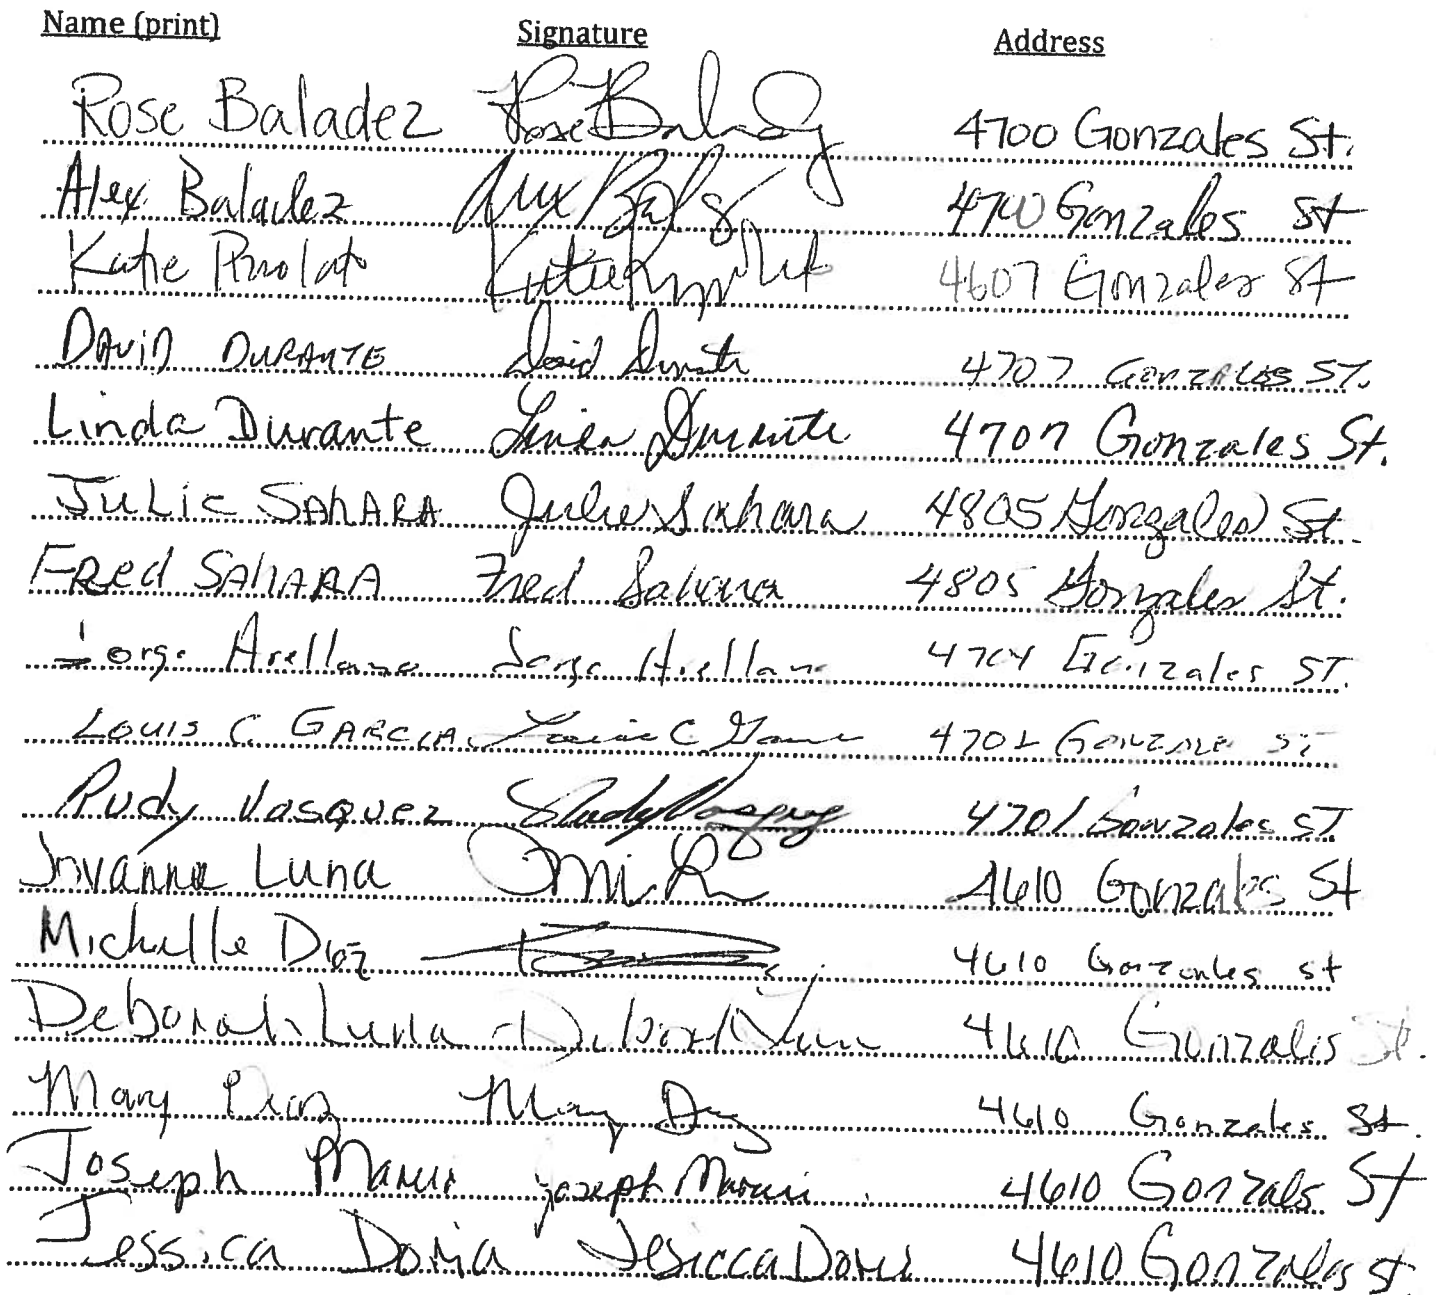 Name (print) Signature Address
Rose Baladez Rose Baladez 4700 Gonzales St.
Alex Baladez Alex 4700 Gonzales St
Katie Katie 4607 Gonzales St
DAVID DURANTE David Durante 4707 GONZALES ST.
Linda Durante Linda Durante 4707 Gonzales St.
JuLie SAhARA Julie Sahara 4805 Gonzales St.
FRed SAhARA Fred Sahara 4805 Gonzales St.
Jorge Arellano Jorge Arellano 4704 Gonzales ST.
LOUIS C. GARCIA Louis C. 4701 GONZALES ST
Rudy Vasquez Rudy Vasquez 4701 Gonzales ST
Jovanna Luna 4610 Gonzales St
Michelle Diaz 4610 Gonzales st
Deborah Luna Deborah Luna 4610 Gonzales St.
Mary Diaz Mary Diaz 4610 Gonzales St.
Joseph Joseph 4610 Gonzals St
Jessica Doria Jesicca 4610 Gonzales st.